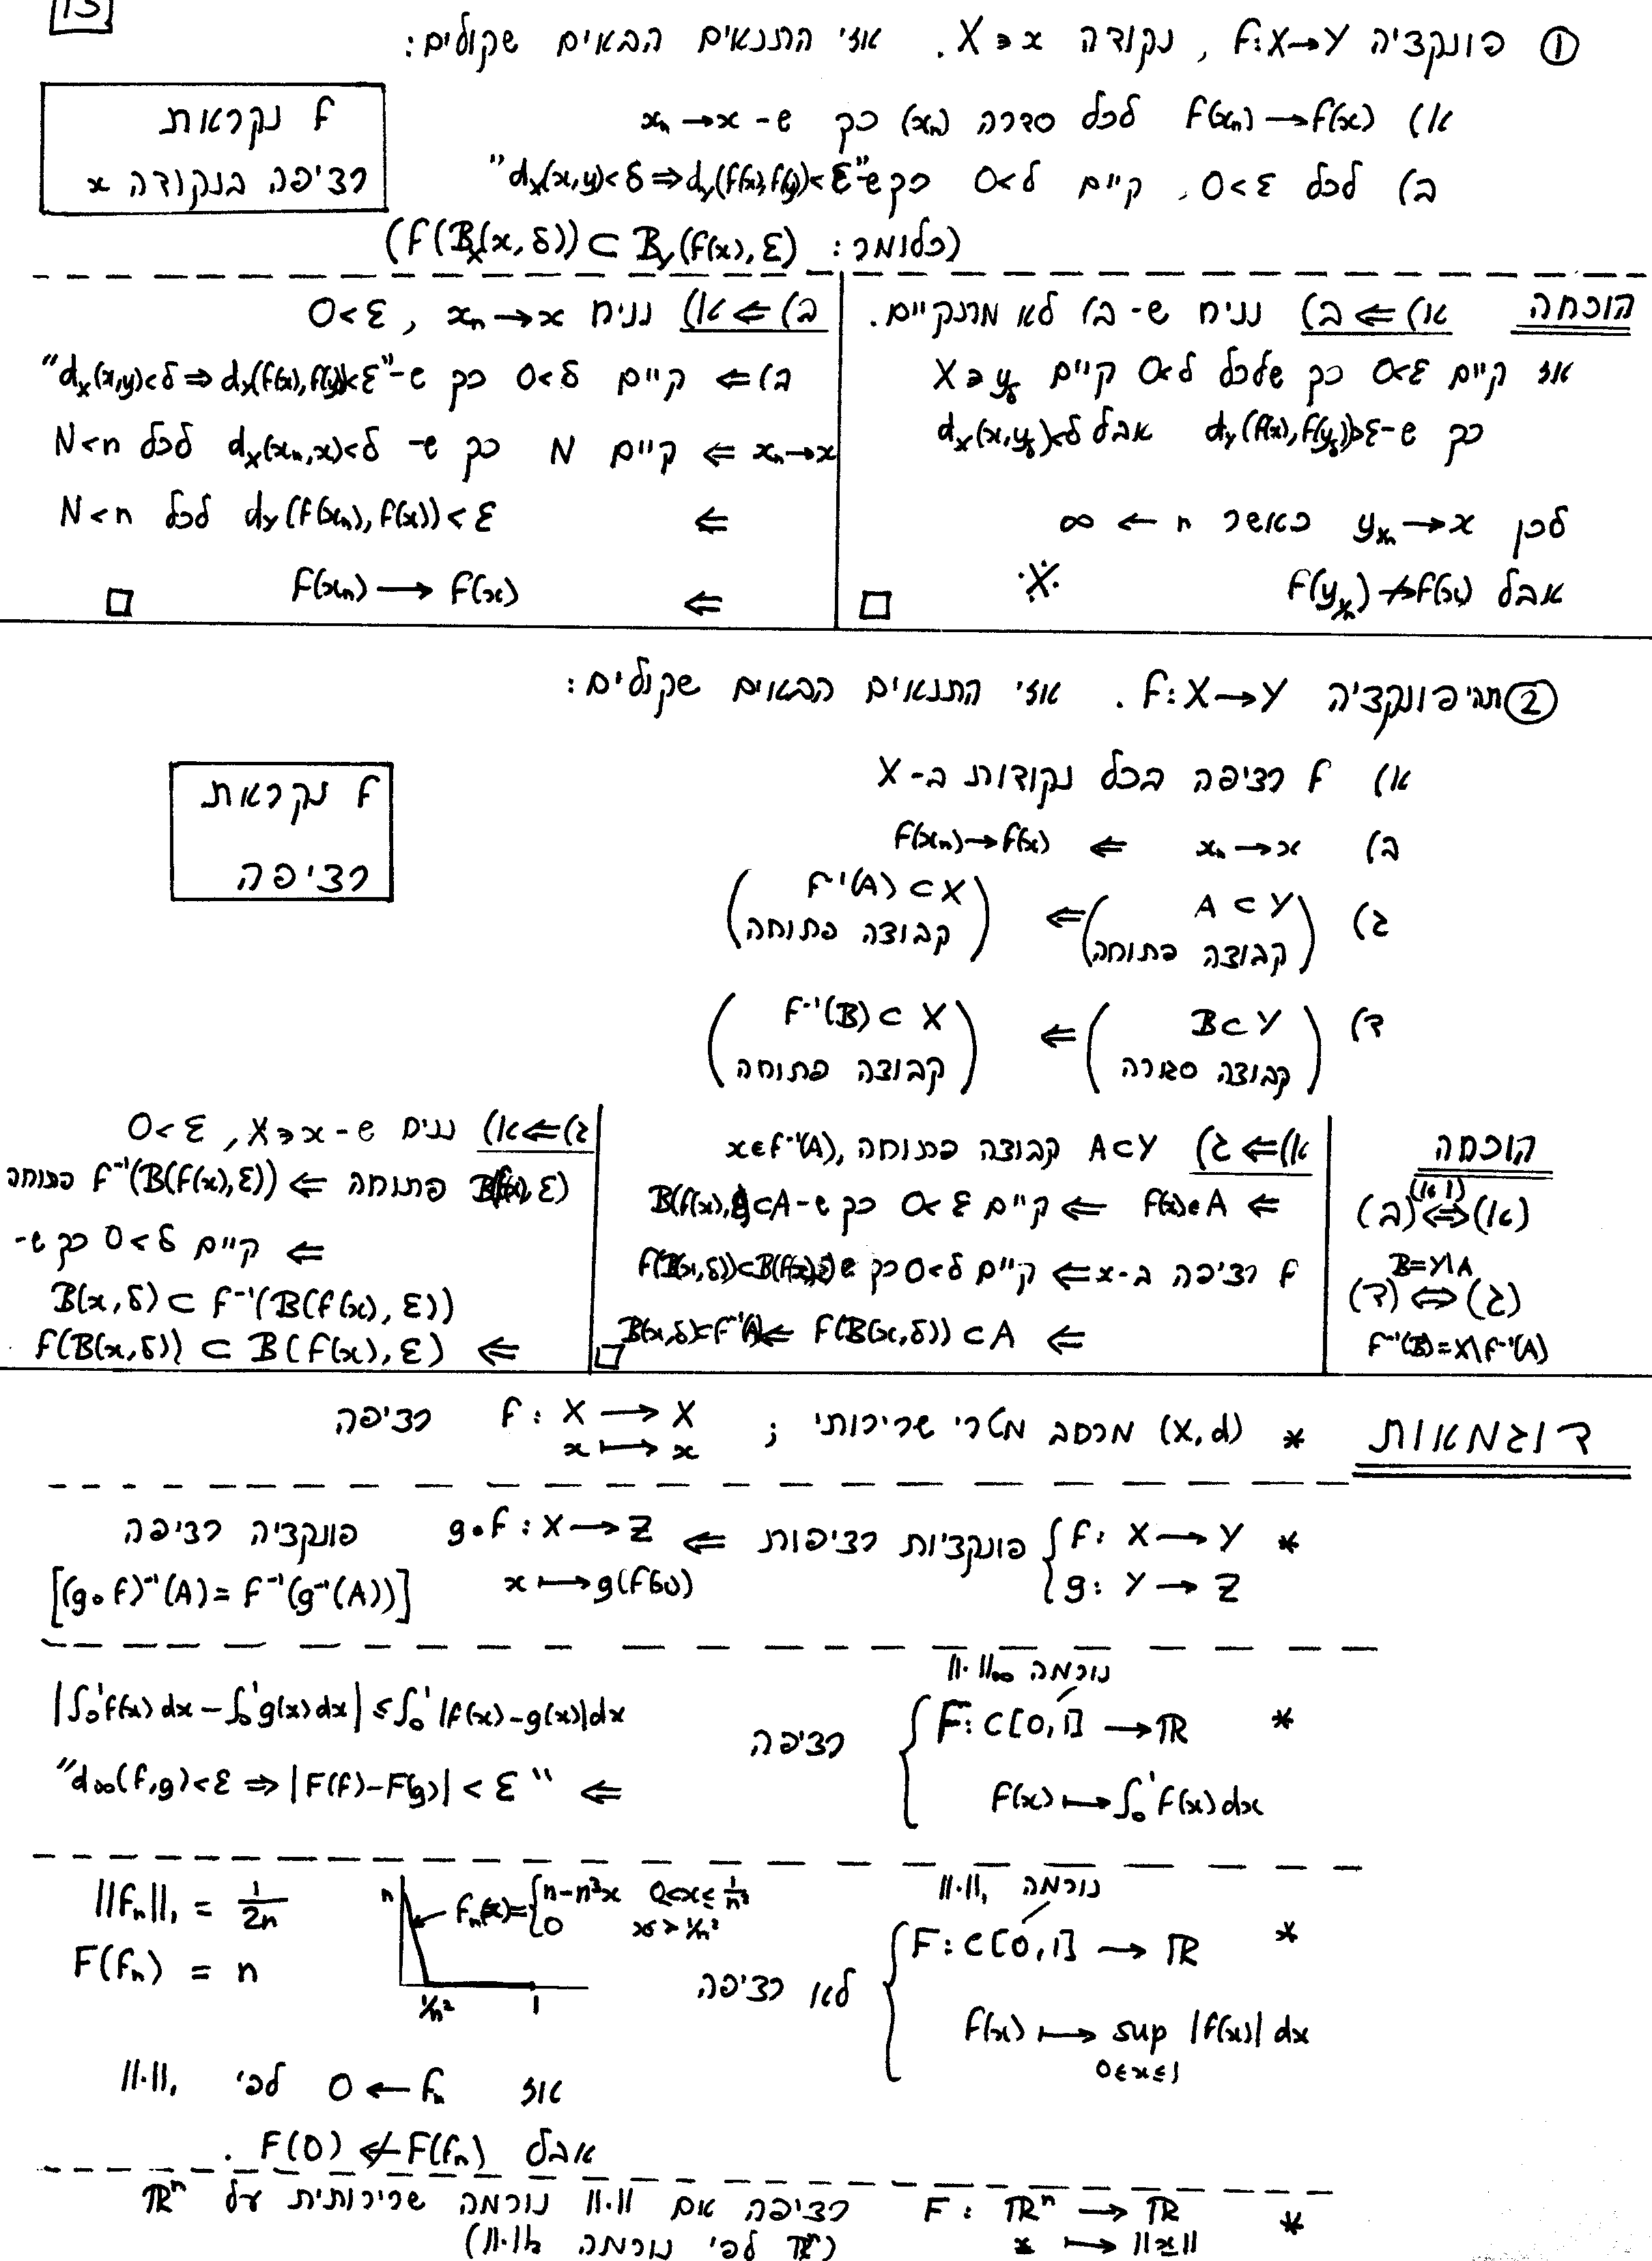 13
① פונקציה f:X→Y , נקודה x∈X . אזי התנאים הבאים שקולים:
א) f(xₙ)→f(x) לכל סדרה (xₙ) כך ש- xₙ→x
ב) לכל 0<ε, קיים 0<δ כך ש-"d_X(x,y)<δ ⇒ d_Y(f(x),f(y))<ε"
(כלומר: f(B_X(x,δ)) ⊂ B_Y(f(x),ε))
f נקראת
רציפה בנקודה x
הוכחה א) ⇐ ב) נניח ש- ב) לא מתקיים.
אז קיים 0<ε כך שלכל 0<δ קיים y_δ∈X
כך ש- d_X(x,y_δ)<δ אבל d_Y(f(x),f(y_δ))>ε
לכן y_{1/n}→x כאשר n→∞
אבל f(y_{1/n})↛f(x) ※ □
ב) ⇐ א) נניח xₙ→x , 0<ε
ב) ⇐ קיים 0<δ כך ש-"d_X(x,y)<δ ⇒ d_Y(f(x),f(y))<ε"
xₙ→x ⇐ קיים N כך ש- d_X(xₙ,x)<δ לכל N<n
⇐ d_Y(f(xₙ),f(x))<ε לכל N<n
⇐ f(xₙ)→f(x) □
② תהי פונקציה f:X→Y . אזי התנאים הבאים שקולים:
א) f רציפה בכל נקודות ב-X
ב) xₙ→x ⇐ f(xₙ)→f(x)
ג) (A⊂Y קבוצה פתוחה) ⇐ (f⁻¹(A)⊂X קבוצה פתוחה)
ד) (B⊂Y קבוצה סגורה) ⇐ (f⁻¹(B)⊂X קבוצה פתוחה)
f נקראת
רציפה
הוכחה
(א) ⇔ (ב)
B=Y\A
(ג) ⇔ (ד)
f⁻¹(B)=X\f⁻¹(A)
א) ⇐ ג) A⊂Y קבוצה פתוחה, x∈f⁻¹(A)
⇐ f(x)∈A ⇐ קיים 0<ε כך ש- B(f(x),ε)⊂A
f רציפה ב-x ⇐ קיים 0<δ כך ש f(B(x,δ))⊂B(f(x),ε)
⇐ f(B(x,δ))⊂A ⇐ B(x,δ)⊂f⁻¹(A) □
ג) ⇐ א) נניח ש- x∈X , 0<ε
B(f(x),ε) פתוחה ⇐ f⁻¹(B(f(x),ε)) פתוחה
⇐ קיים 0<δ כך ש-
B(x,δ) ⊂ f⁻¹(B(f(x),ε))
⇐ f(B(x,δ)) ⊂ B(f(x),ε)
דוגמאות * (X,d) מרחב מטרי שרירותי ; f: X→X רציפה
x↦x
* {f: X→Y פונקציות רציפות ⇐ g∘f: X→Z פונקציה רציפה
g: Y→Z x↦g(f(x)) [(g∘f)⁻¹(A)=f⁻¹(g⁻¹(A))]
נורמה ‖·‖∞
* F: C[0,1]→ℝ רציפה
f(x)↦∫₀¹f(x)dx
|∫₀¹f(x)dx−∫₀¹g(x)dx| ≤ ∫₀¹|f(x)−g(x)|dx
⇐ "d∞(f,g)<ε ⇒ |F(f)−F(g)|<ε"
נורמה ‖·‖₁
* F: C[0,1]→ℝ לא רציפה
f(x)↦ sup |f(x)| dx
0≤x≤1
n fₙ(x)={n−n³x 0<x≤1/n²
0 x>1/n²
1/n² 1
‖fₙ‖₁ = 1/2n
F(fₙ) = n
אז fₙ→0 לפי ‖·‖₁
אבל F(fₙ)↛F(0) .
* F: ℝⁿ→ℝ רציפה אם ‖·‖ נורמה שרירותית על ℝⁿ
x↦‖x‖ (ℝⁿ לפי נורמה ‖·‖₂)